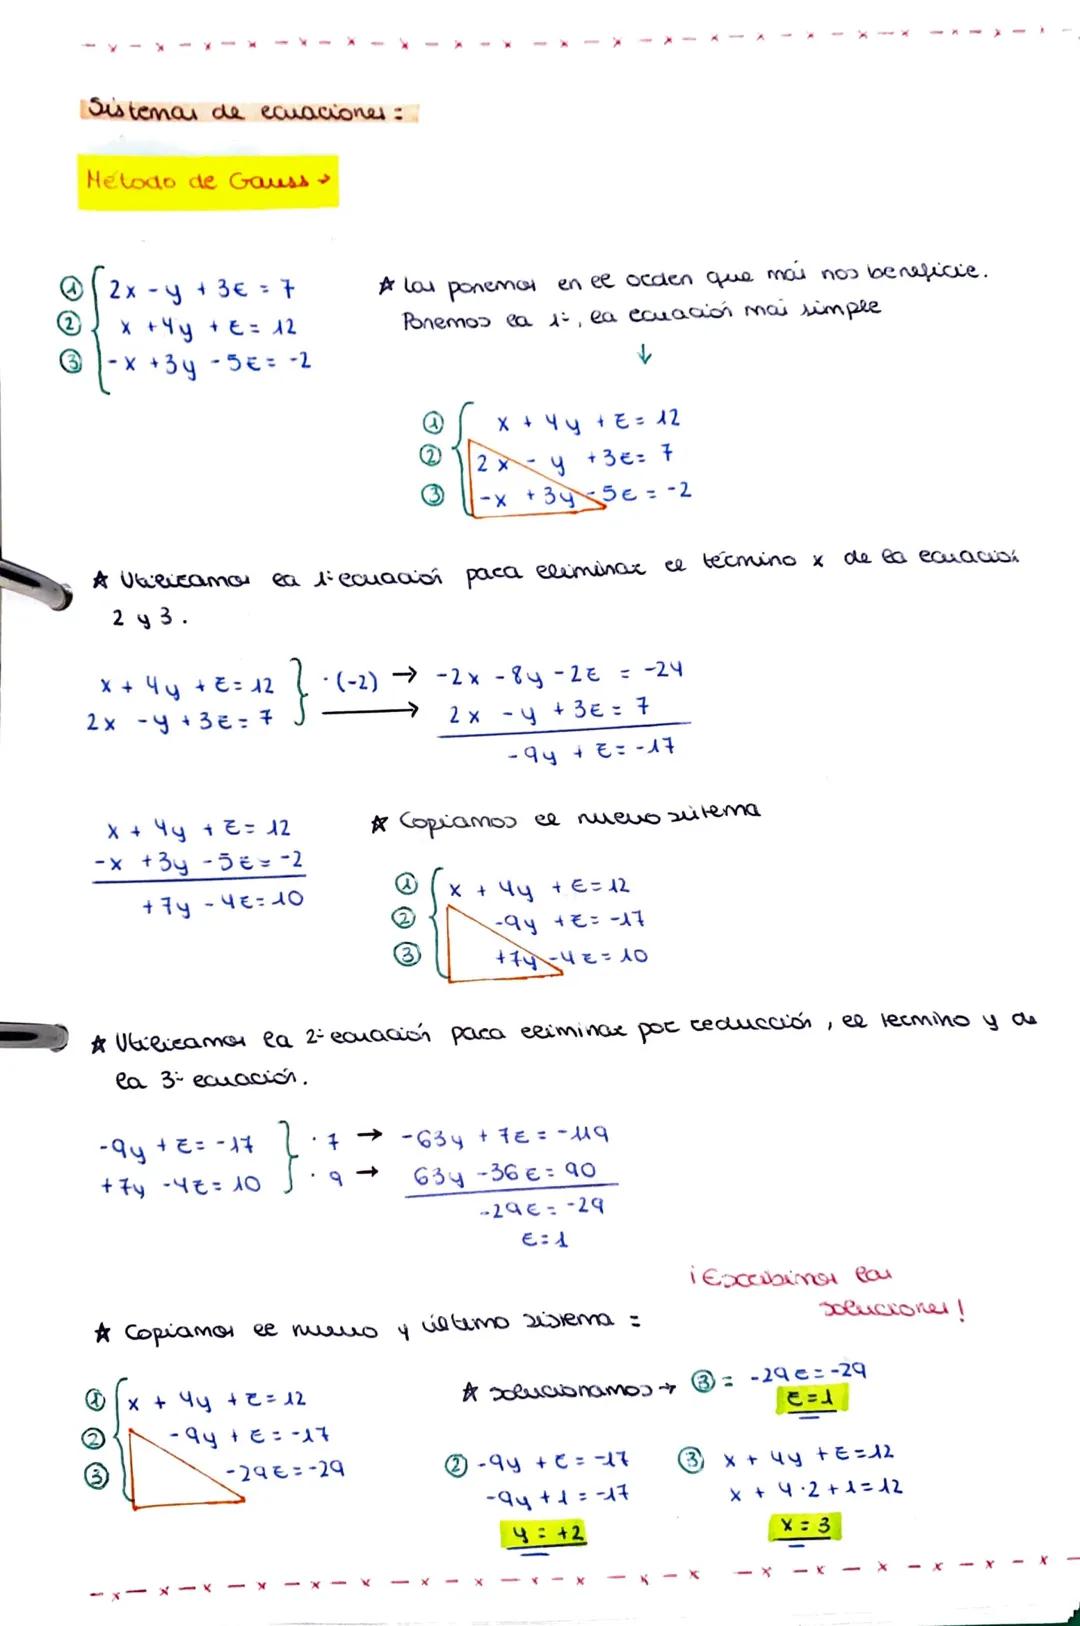 Sistemas de ecuaciones:
Método de Gauss →
① 2x - y + 3z = 7
② x + 4y + z = 12
③ -x + 3y - 5z = -2
☆ Las ponemos en el orden que más nos beneficie.
Ponemos la 1ª, la ecuación más simple
↓
① x + 4y + z = 12
② 2x - y + 3z = 7
③ -x + 3y - 5z = -2
☆ Utilizamos la 1ª ecuación para eliminar el término x de la ecuación
2 y 3.
x + 4y + z = 12 } · (-2) → -2x - 8y - 2z = -24
2x - y + 3z = 7 → 2x - y + 3z = 7
-9y + z = -17
x + 4y + z = 12
-x + 3y - 5z = -2
+7y - 4z = 10
☆ Copiamos el nuevo sistema
① x + 4y + z = 12
② -9y + z = -17
③ +7y - 4z = 10
☆ Utilizamos la 2ª ecuación para eliminar por reducción, el termino y de
la 3ª ecuación.
-9y + z = -17 } · 7 → -63y + 7z = -119
+7y - 4z = 10 } · 9 → 63y - 36z = 90
-29z = -29
z = 1
¡Escribimos las
soluciones!
☆ Copiamos el nuevo y último sistema:
① x + 4y + z = 12
② -9y + z = -17
③ -29z = -29
☆ solucionamos → ③ = -29z = -29
z = 1
② -9y + z = -17
-9y + 1 = -17
y = +2
③ x + 4y + z = 12
x + 4·2 + 1 = 12
x = 3